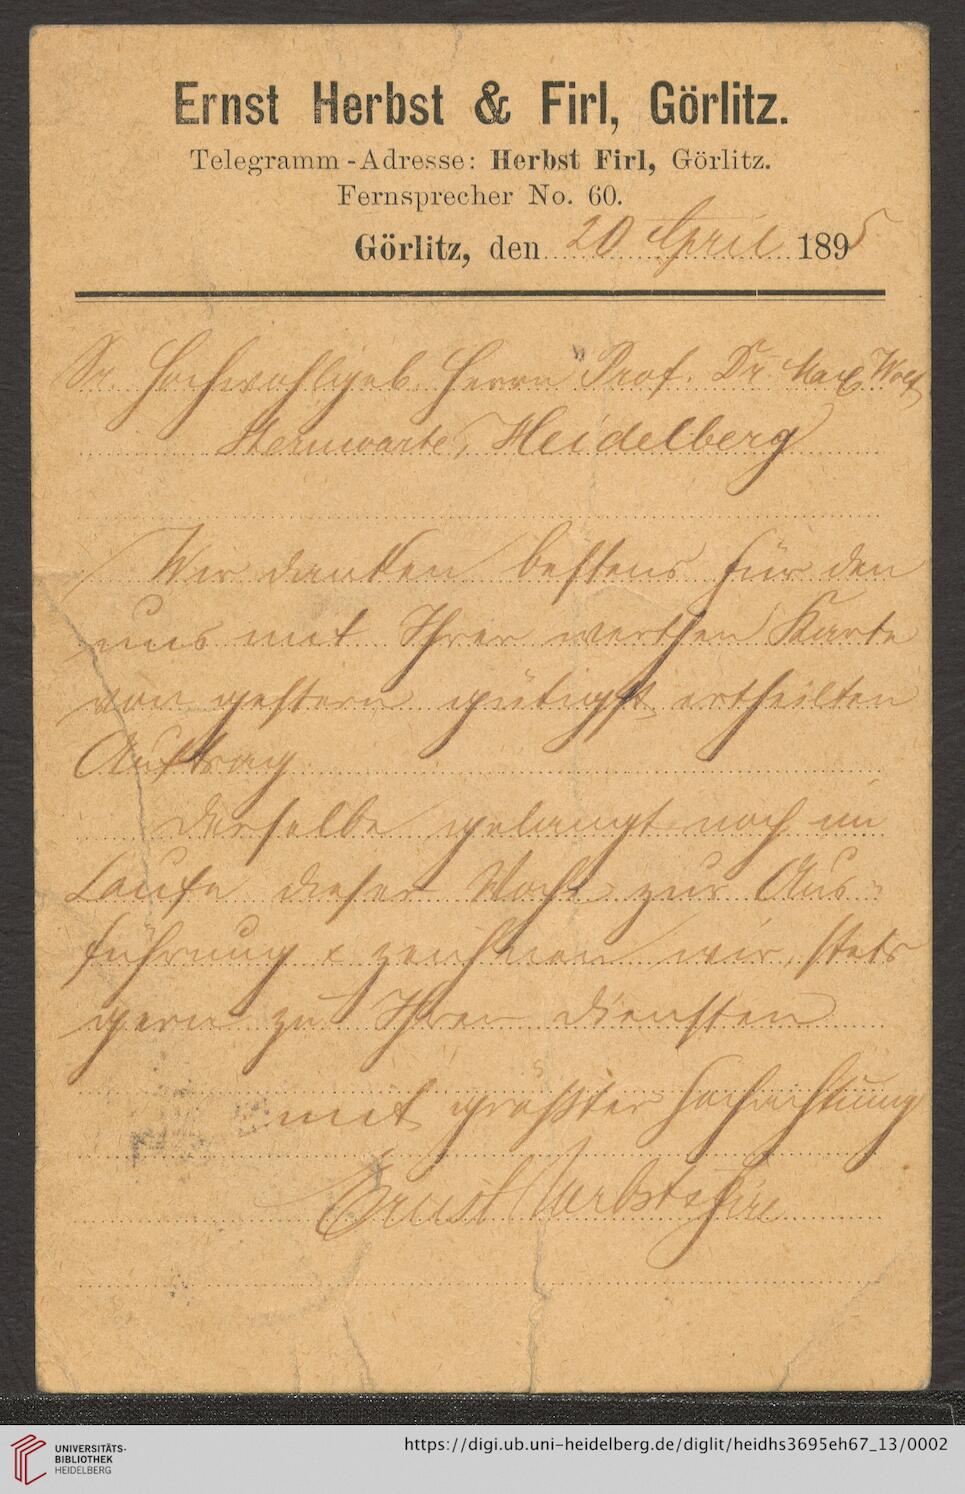 Ernst Herbst & Firl, Görlitz.
Telegramm-Adresse: Herbst Firl, Görlitz.
Fernsprecher No. 60.
Görlitz, den 20 April 1895
Sr. Hochwohlgeb. Herrn Prof. Dr Max Wolf
Sternwarte, Heidelberg
Wir danken bestens für den
uns mit Ihrer werthen Karte
von gestern gütigst ertheilten
Auftrag
Derselbe gelangt noch im
Laufe dieser Woche zur Aus-
führung & zeichnen wir, stets
gern zu Ihren Diensten
mit größter Hochachtung
Ernst Herbst & Firl
UNIVERSITÄTS-
BIBLIOTHEK
HEIDELBERG
https://digi.ub.uni-heidelberg.de/diglit/heidhs3695eh67_13/0002